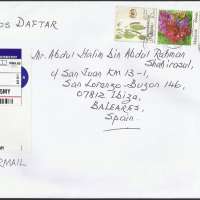 OS DAFTAR
Mr. Abdul Halim bin Abdul Rahman
Shahirasul,
c/ San Juan KM 13-1,
San Lorenzo-Buzon 146,
07812 Ibiza,
BALEARES,
Spain.
RMAIL